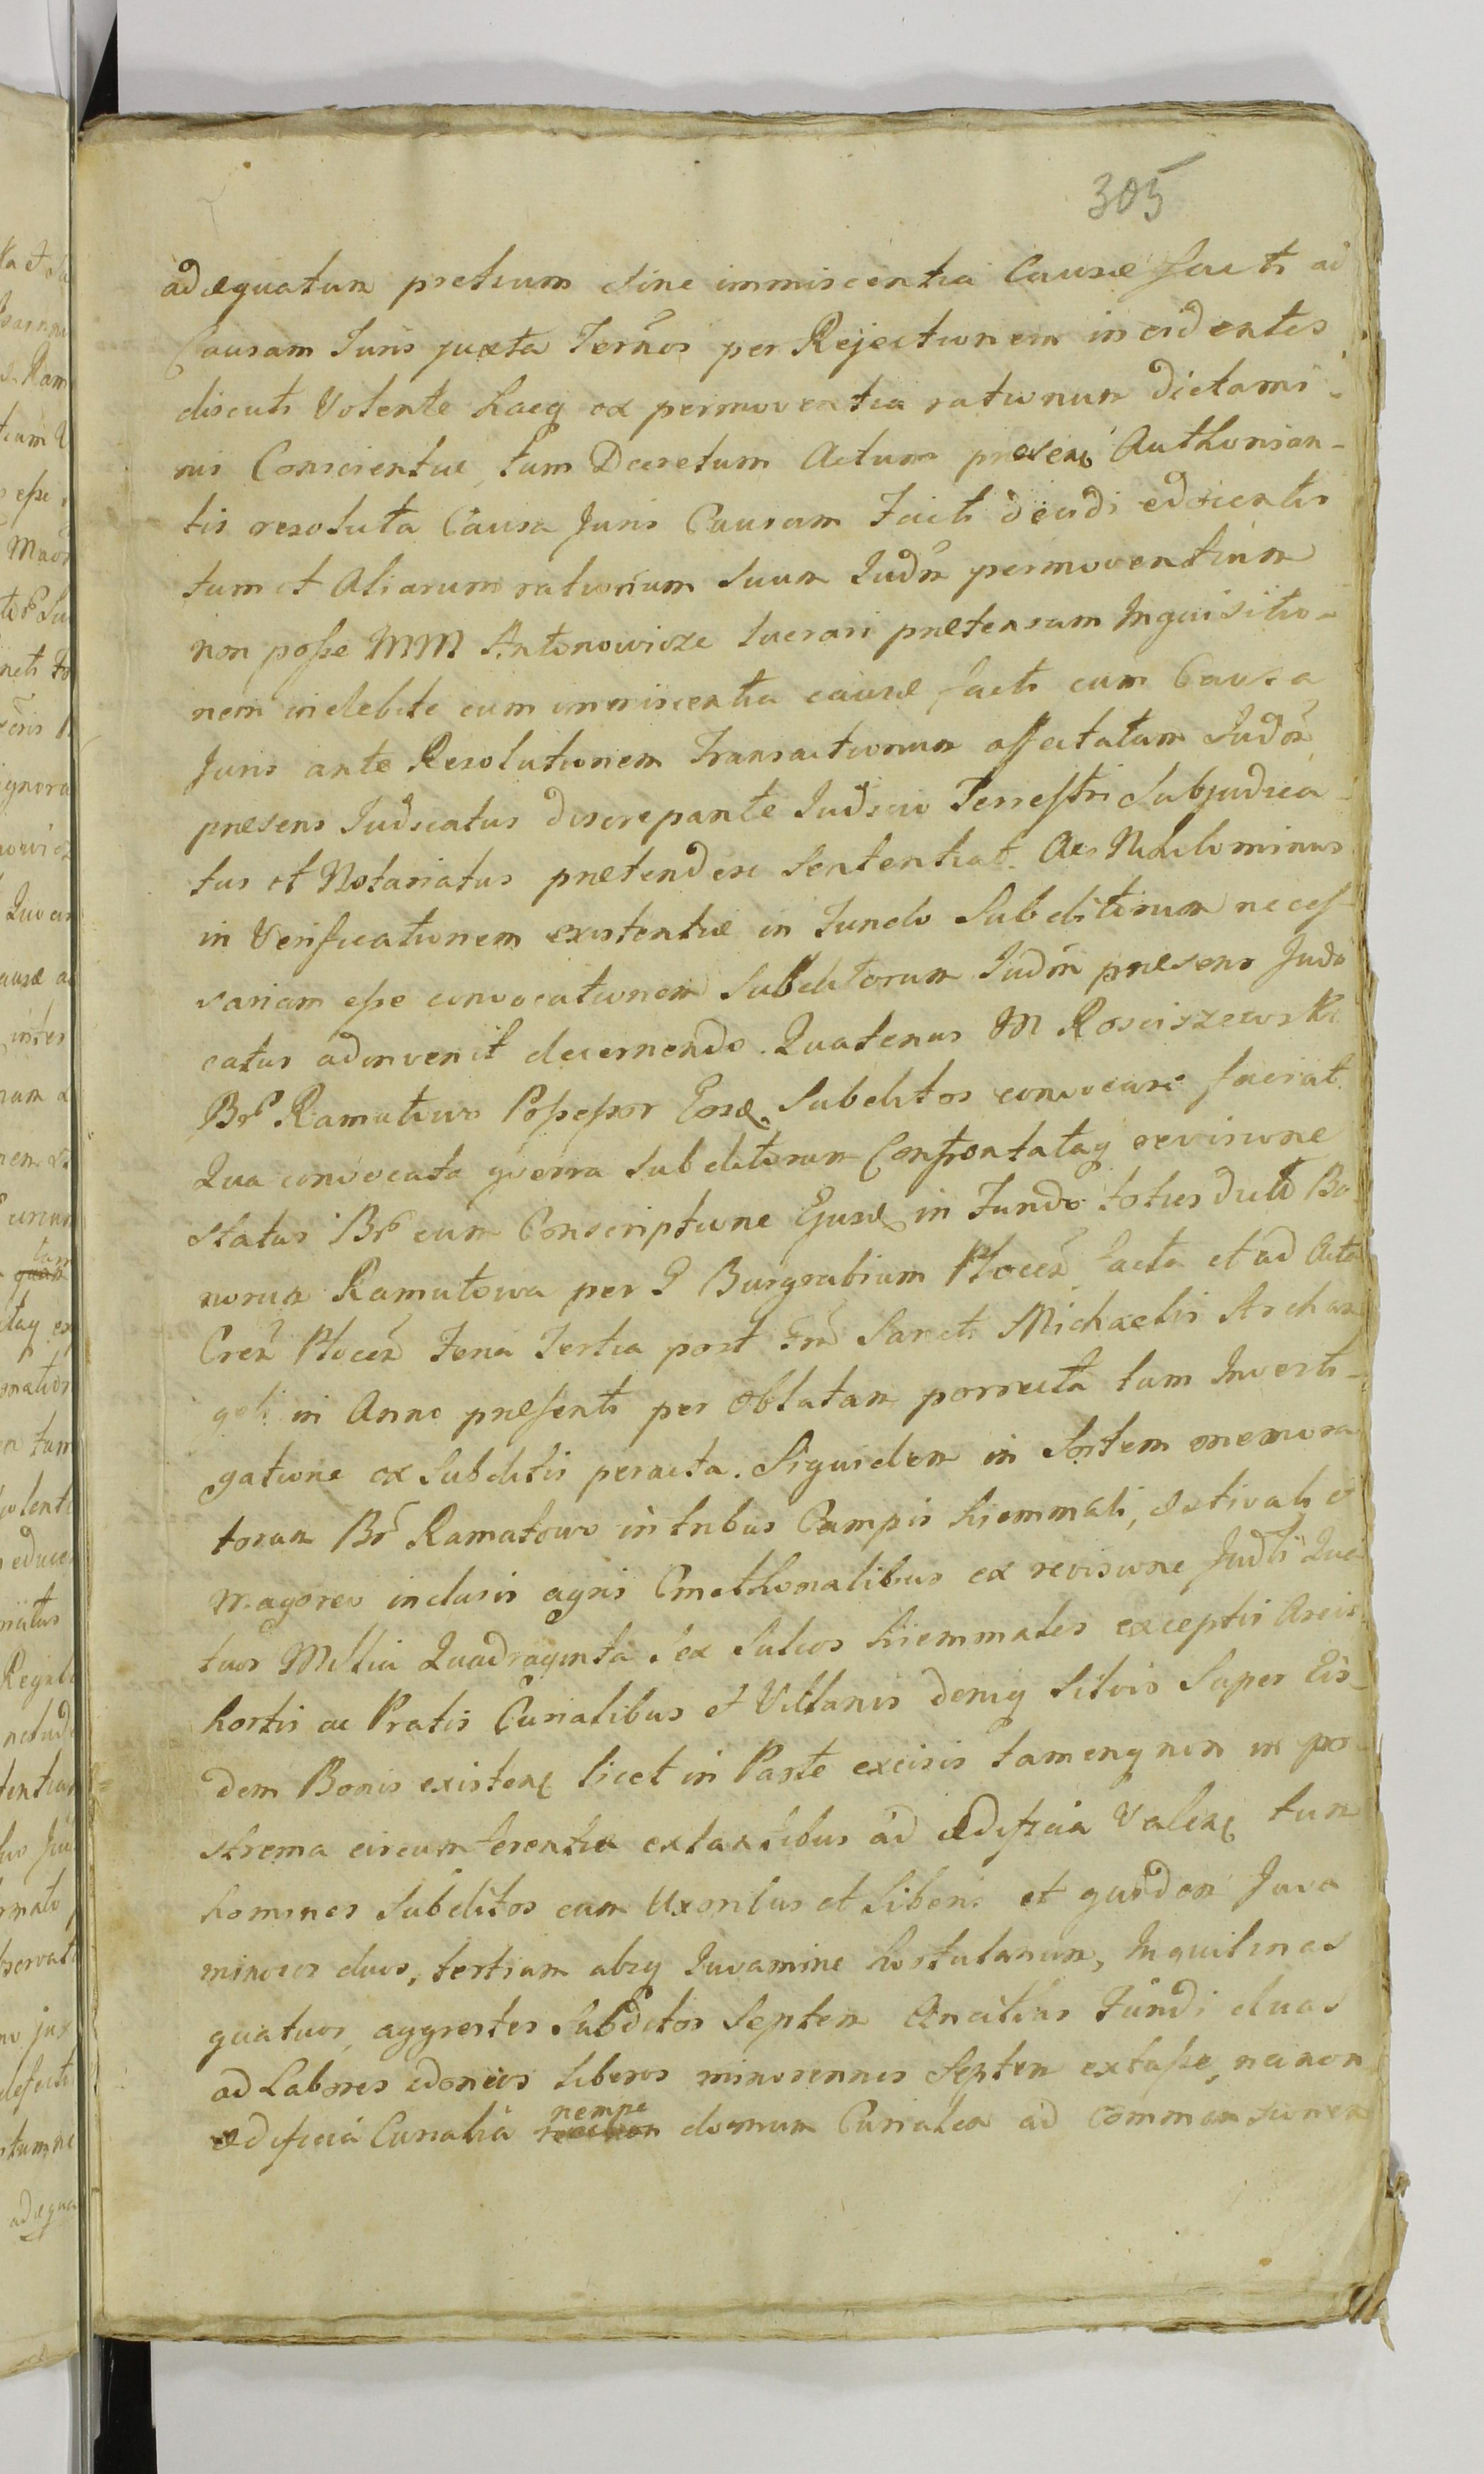 305
adæquatum pretium sine immiscentia Causæ facti ad
Causam Juris juxta Term̃os per Rejectionem incidentes
discuti Volente haeq ex permoventia rationum dictami-
nis Conscientiæ, tum Decretum Actum præsenẽ Authorisan-
tis resoluta Causa Juris Causam Facti decidi edicentis
tum et Aliarum rationum suum Iudm̃ permoventium
non poſse MM Antonowicze lucrari prætensam Inquisitio-
nem indebite cum immiscentia causæ facti cum Causa
Juris ante Resolutionem Transactionum affectatam Iudm̃
præsens Iudicatus discrepante Iudicio Terreſtri Subjudica-
tus et Notariatus prætendere Sententiat. Ac Nihilominus
in Verificationem existentiæ in Fundo Subditorum neceſ-
sariam eſse convocationem Subditorum Iudm̃ præsens Judi
catus adinvenit decernendo. Quatenus M Rosciszewski
Br̃ Ramutowo Poſseſsor Eosd. Subditos convocare faciat.
Qua convocata generã Subditorum Confrontataq revisione
status Br̃ cum Conscriptione Ejusd in Fundo toties dictõ Bo
norum Ramutowa per G Burgrabium Plocen̄ facta et ad Acta
Cren̄ Plocen̄ Feria Tertia post Fm̃ Sancti Michaelis Archan
geli in Anno præſenti per Oblatam porrecta tum Investi-
gatione ex Subditis peracta. Siquidem in Sortem memora
torum Br̃ Ramatowo in tribus Campis hiemmali, æstivali et
vragoreo inclusis agris Cmethonalibus ex revisione Judti Qua
tuor Millia Quadraginta Sex Sulcos hiemmales exceptis Areis
hortis ac Pratis Curialibus et Villanis deniq Silvis Super Eis-
dem Bonis existenẽ licet in Parte excisis tamenq non in po
strema circumferentia extantibus ad ædificia Valenẽ tum
homines Subditos cum Uxoribus et Liberis et quidem Juva
minosos duos, tertiam absq Iuvamine hortulanum, Inquilinas
quatuor, aggrestes Subditos Septem Ancillas Fundi duas
ad Labores idoneos liberos minorennes Septem extaſse, necnon
ædificia Curialia nempe domum Curialem ad commansionem